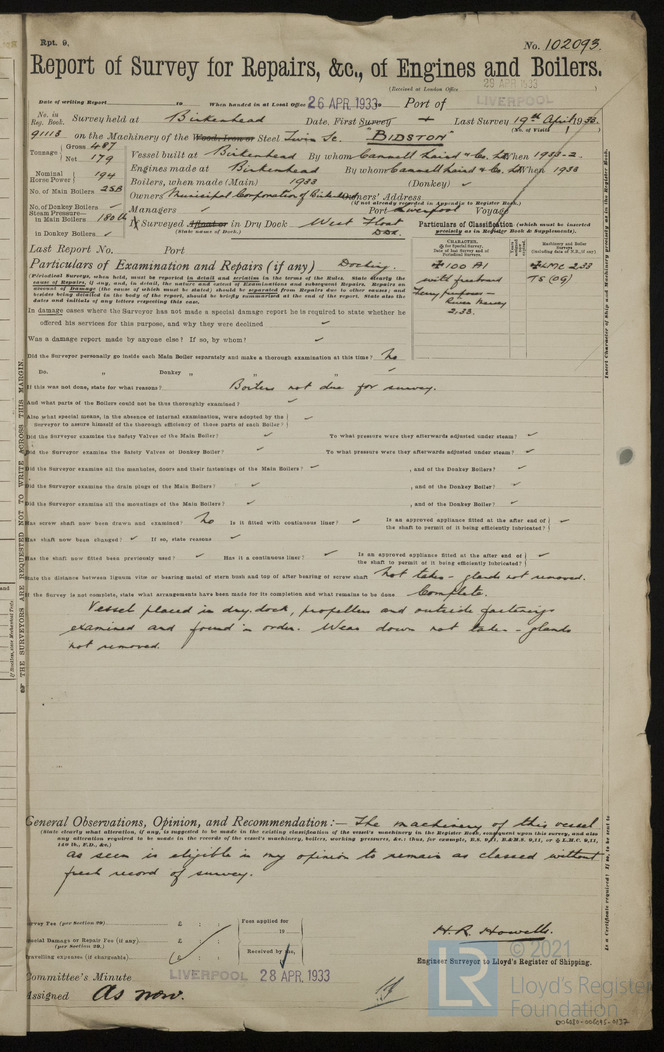 Rpt. 9.
No. 102093
Report of Survey for Repairs, &c., of Engines and Boilers.
(Received at London Office
29 APR 1933
Date of writing Report to When handed in at Local Office 26 APR. 1933 Port of LIVERPOOL
No. in Reg. Book. Survey held at Birkenhead Date, First Survey Last Survey 19th April 1933
(No. of Visits 1 )
91113 on the Machinery of the Wood, Iron or Steel Twin Sc. "BIDSTON"
Tonnage Gross 487 Net 179
Vessel built at Birkenhead By whom Cammell Laird & Co. Ld When 1933-2
Nominal Horse Power 194
Engines made at Birkenhead By whom Cammell Laird & Co. Ld When 1933
No. of Main Boilers 2SB
Boilers, when made (Main) 1933 (Donkey) ✓
No. of Donkey Boilers ✓
Owners Municipal Corporation of Birkenhead Owners' Address
(if not already recorded in Appendix to Register Book.)
Steam Pressure— in Main Boilers 180 lb
Managers ✓ Port Liverpool Voyage
in Donkey Boilers ✓
If Surveyed Afloat or in Dry Dock West Float Dock.
(State name of Dock.)
Particulars of Classification (which must be inserted precisely as in Register Book & Supplements).
Last Report No. Port
CHARACTER,
Machinery and Boiler Surveys
Particulars of Examination and Repairs (if any) Docking.
✠ 100 A1
with freeboard
ferry purposes—
River Mersey
2,33.
✠ LMC 2,33
TS (OG)
(Periodical Surveys, when held, must be reported in detail and seriatim in the terms of the Rules. State clearly the
cause of Repairs, if any, and, in detail, the nature and extent of Examinations and subsequent Repairs. Repairs on
account of Damage (the cause of which must be stated) should be separated from Repairs due to other causes; and
besides being detailed in the body of the report, should be briefly summarised at the end of the report. State also the
dates and initials of any letters respecting this case.
In damage cases where the Surveyor has not made a special damage report he is required to state whether he
offered his services for this purpose, and why they were declined ✓
Was a damage report made by anyone else? If so, by whom? ✓
Did the Surveyor personally go inside each Main Boiler separately and make a thorough examination at this time? No
Do. „ Donkey „ „ „ ✓
If this was not done, state for what reasons? Boilers not due for survey.
And what parts of the Boilers could not be thus thoroughly examined? ✓
Also what special means, in the absence of internal examination, were adopted by the
Surveyor to assure himself of the thorough efficiency of those parts of each Boiler? ✓
Did the Surveyor examine the Safety Valves of the Main Boiler? ✓ To what pressure were they afterwards adjusted under steam? ✓
Did the Surveyor examine the Safety Valves of Donkey Boiler? ✓ To what pressure were they afterwards adjusted under steam? ✓
Did the Surveyor examine all the manholes, doors and their fastenings of the Main Boilers? ✓ , and of the Donkey Boilers? ✓
Did the Surveyor examine the drain plugs of the Main Boilers? ✓ , and of the Donkey Boiler? ✓
Did the Surveyor examine all the mountings of the Main Boilers? ✓ , and of the Donkey Boiler? ✓
Has screw shaft now been drawn and examined? No Is it fitted with continuous liner? ✓ Is an approved appliance fitted at the after end of
the shaft to permit of it being efficiently lubricated? ✓
Has shaft now been changed? ✓ If so, state reasons ✓
Has the shaft now fitted been previously used? ✓ Has it a continuous liner? ✓ Is an approved appliance fitted at the after end of
the shaft to permit of it being efficiently lubricated? ✓
State the distance between lignum vitæ or bearing metal of stern bush and top of after bearing of screw shaft Not taken - glands not removed.
If the Survey is not complete, state what arrangements have been made for its completion and what remains to be done Complete.
Vessel placed in dry dock, propellers and outside fastenings
examined and found in order. Wear down not taken - glands
not removed.
General Observations, Opinion, and Recommendation:— The machinery of this vessel
(State clearly what alteration, if any, is suggested to be made in the existing classification of the vessel's machinery in the Register Book, consequent upon this survey, and also
any alteration required to be made in the records of the vessel's machinery, boilers, working pressures, &c.; thus, for example, B.S. 9,11, B.&M.S. 9,11, or ✠ L.M.C. 9,11,
140 lb., F.D., &c.)
as seen is eligible in my opinion to remain as classed without
fresh record of survey.
Survey Fee (per Section 29) £ : :
Fees applied for
19
Special Damage or Repair Fee (if any) £ : :
(per Section 29.)
Received by me,
Travelling expenses (if chargeable) £ : :
H. R. Howells.
Engineer Surveyor to Lloyd's Register of Shipping.
Committee's Minute LIVERPOOL 28 APR. 1933
Assigned As now.
OF THE SURVEYORS ARE REQUESTED NOT TO WRITE ACROSS THIS MARGIN
Insert Character of Ship and Machinery precisely as in the Register Book.
Is a Certificate required? If so, to be sent to
LR
© 2021
Lloyd's Register
Foundation